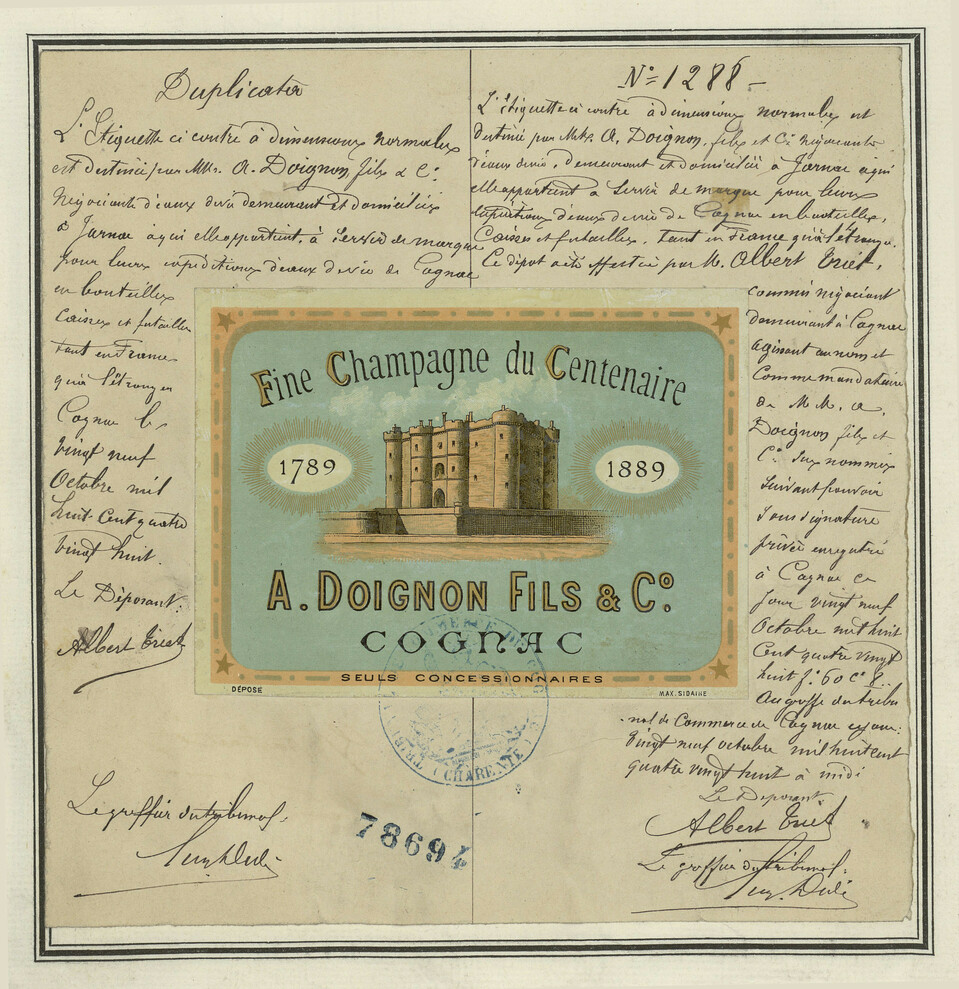 Duplicata
L'Etiquette ci contre à dimensions normales
est destinée par MM. A. Doignon fils & Cº
Négociants d'eaux de vie demeurant et domiciliés
à Jarnac à qui elle appartient, à servir de marque
pour leurs expéditions d'eaux de vie de Cognac
en bouteilles
caisses et futailles
tant en France
qu'à l'étranger
Cognac le
vingt neuf
Octobre mil
huit cent quatre
vingt huit.
Le Déposant:
Albert Triet
Le greffier du tribunal.
Nº 1288
L'Etiquette ci contre à dimensions normales est
destinée par MM. A. Doignon, fils et Cº négociants
d'eaux de vie, demeurant et domiciliés à Jarnac à qui
elle appartient à servir de marque pour leurs
expéditions d'eaux de vie de Cognac en bouteilles,
Caisses et futailles, tant en France qu'à l'étranger.
Ce dépot a été effectué par M. Albert Triet,
commis négociant
demeurant à Cognac
agissant au nom et
comme mandataire
de M.M. A.
Doignon fils et
Cº sus nommés
suivant pouvoir
sous signature
privée enregistré
à Cognac ce
jour vingt neuf
Octobre mil huit
cent quatre vingt
huit fº 60 cº 8.
Au greffe du tribu
nal de Commerce de Cognac ce jour:
vingt neuf octobre mil huit cent
quatre vingt huit à midi
Le Déposant
Albert Triet
Le greffier du tribunal.
Fine Champagne du Centenaire
1789
1889
A. DOIGNON FILS & Cº.
COGNAC
SEULS CONCESSIONNAIRES
DÉPOSÉ
MAX. SIDAINE
CHARENTE
78694